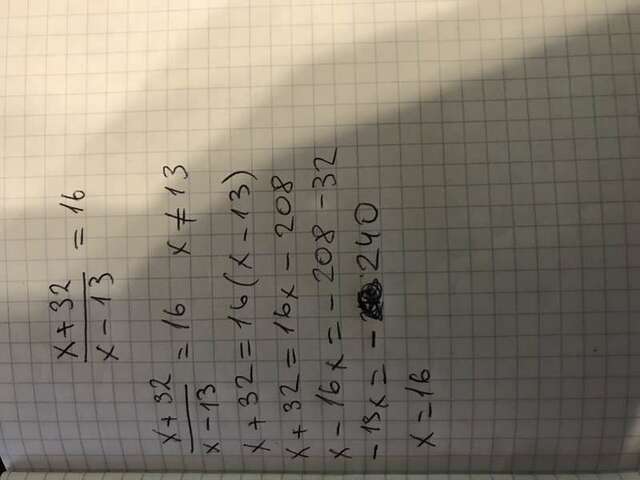 x+32
x−13 = 16
x+32
x−13 = 16 x ≠ 13
x+32 = 16(x−13)
x+32 = 16x − 208
x − 16x = − 208 − 32
−15x = − 240
x = 16